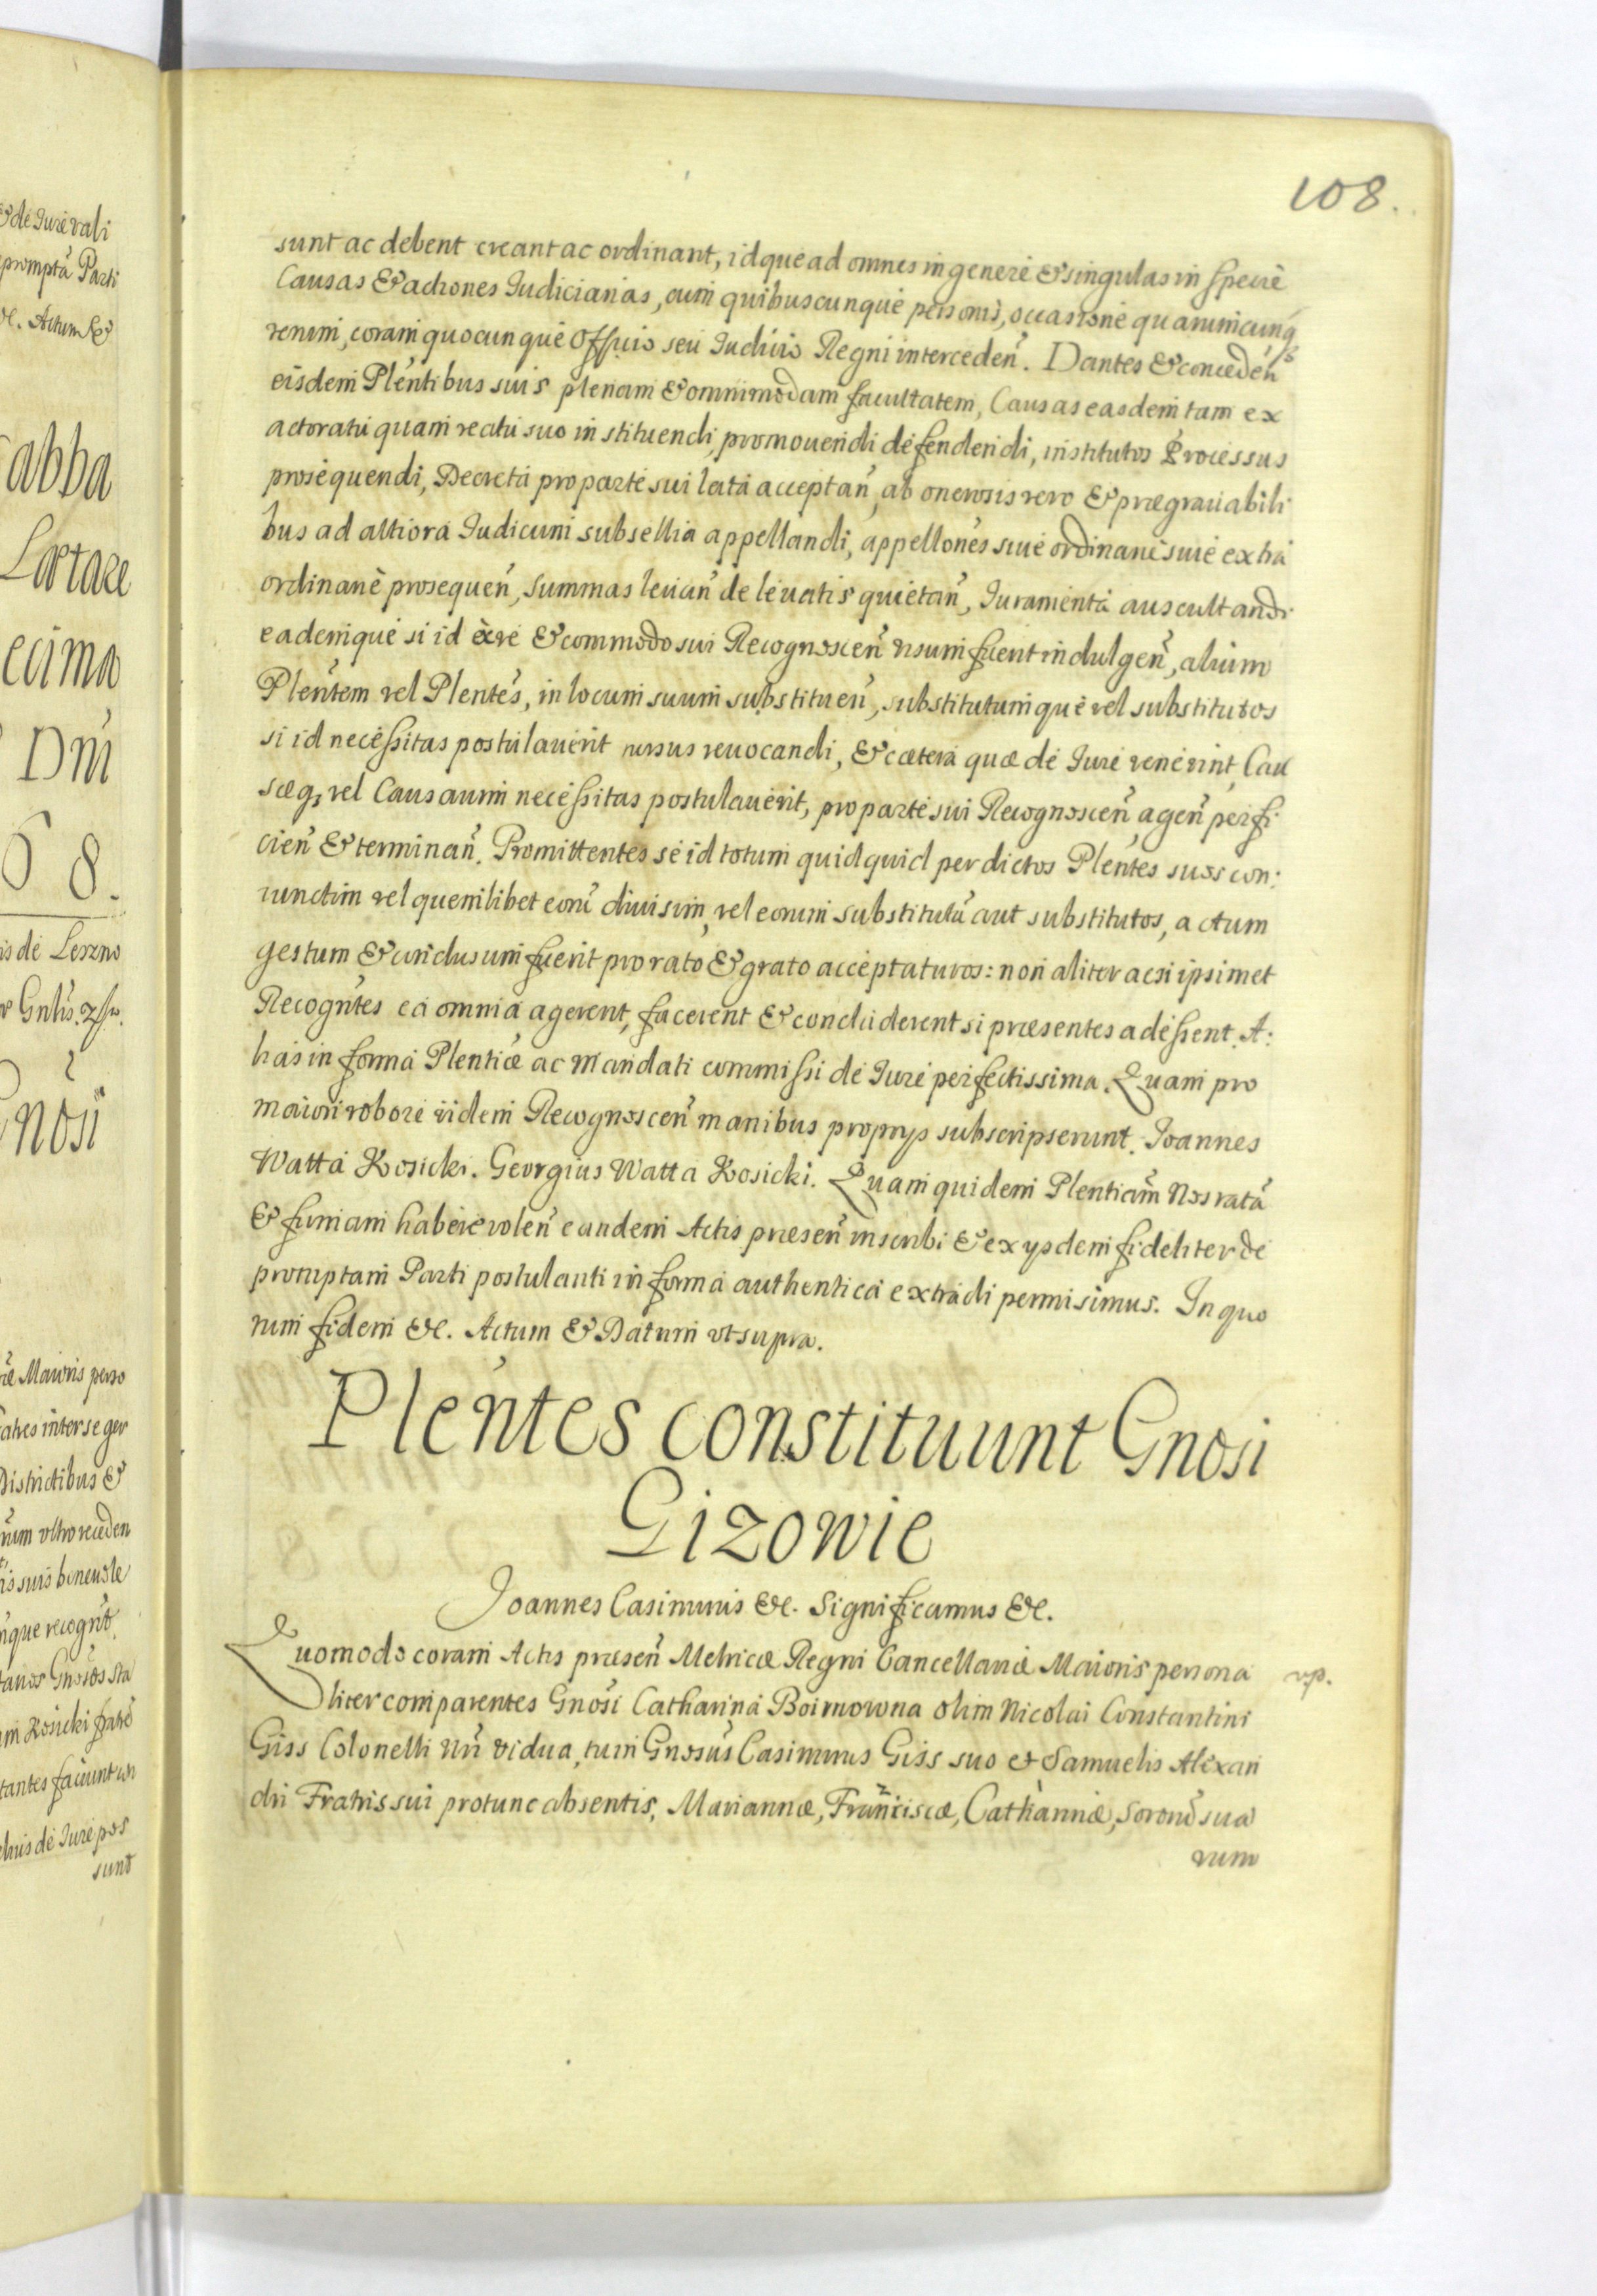 108.
sunt ac debent creant ac ordinant, idque ad omnes in genere & singulas in specie
Causas & actiones Judiciarias, cum quibuscunque personis, occasione quarumcunq
rerum, coram quocunque Officio seu Judicio Regni interceden. Dantes & conceden
eisdem Plentibus suis plenam & omnimodam facultatem, Causas easdem tam ex
actoratu quam reatu suo instituendi, promouendi defendendi, institutos Processus
prosequendi, Decreta pro parte sui lata acceptan, ab onerosis vero & prægrauabili
bus ad altiora Judicum subsellia appellandi, appellones siue ordinarie siue extra
ordinarie prosequen, summas leuan de leuatis quietan, Juramenta auscultandi
eademque si id ex re & commodo sui Recognoscen visum fuerit indulgen, alium
Plentem vel Plentes, in locum suum substituen, substitutumque vel substitutos
si id necessitas postulauerit rursus reuocandi, & cætera quæ de Jure venerint Cau
sæq3 vel Causarum necessitas postulauerit, pro parte sui Recognoscen agen perfi
cien & terminan. Promittentes se id totum quidquid per dictos Plentes suos con:
iunctim vel quemlibet eorum diuisim, vel eorum substitutu aut substitutos, actum
gestum & conclusum fuerit pro rato & grato acceptaturos: non aliter ac si ipsimet
Recogntes ea omnia agerent, facerent & concluderent si præsentes adessent. A:
lias in forma Plentiæ ac Mandati commissi de Jure perfectissima. Quam pro
maiori robore iidem Recognoscen manibus proprys subscripserunt. Joannes
Watta Kosicki. Georgius Watta Kosicki. Quam quidem Plentiam Nos rata
& firmam habere volen eandem Actis præsen inscribi & ex ysdem fideliter de
promptam Parti postulanti in forma authentica extradi permisimus. In quo
rum fidem &c. Actum & Datum vt supra.
Plentes constituunt Gnosi
Gizowie
Joannes Casimirus &c. Significamus &c.
Quomodo coram Actis præsen Metricæ Regni Cancellariæ Maioris persona
liter comparentes Gnosi Catharina Boimowna olim Nicolai Constantini
Giss Colonelli vidua, tum Gnosus Casimirus Giss suo et Samuelis Alexan
dri Fratris sui protunc absentis, Mariannæ, Franciscæ, Catharinæ, Sororu sua
rum